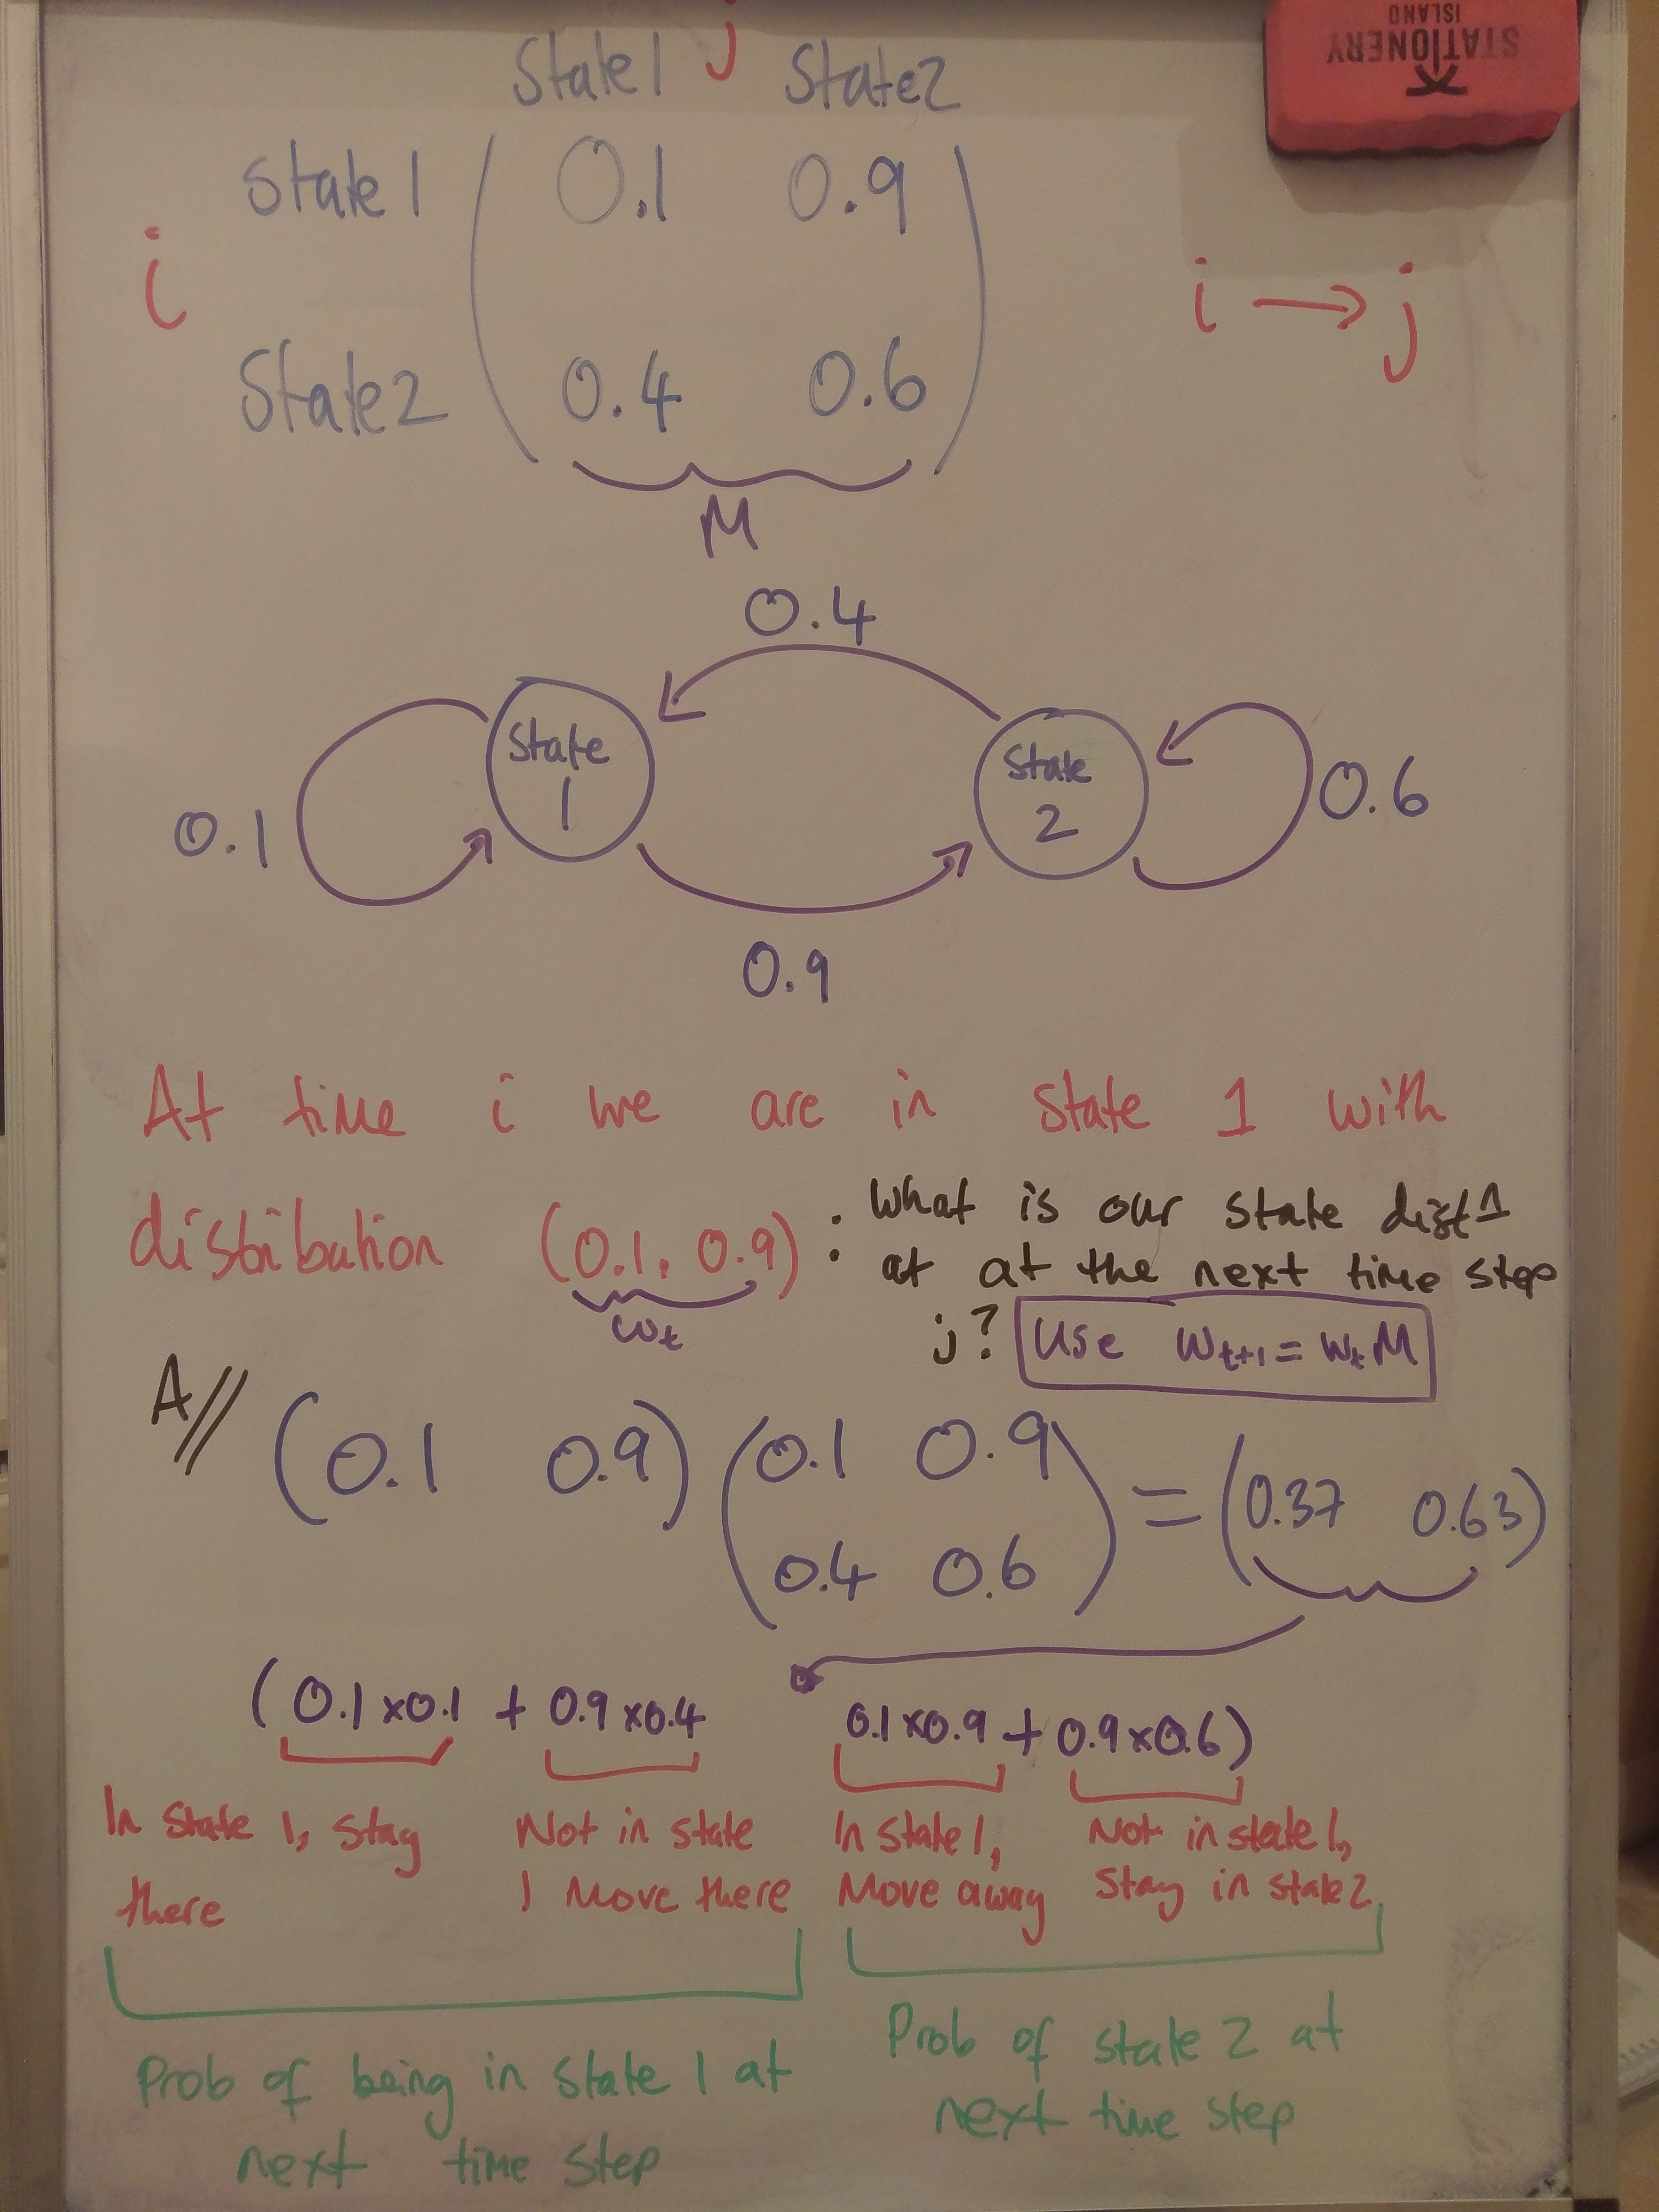 STATIONERY
ISLAND
j
State 1 State 2
State 1 0.1 0.9
i
i → j
State 2 0.4 0.6
M
0.4
State
1
State
2
0.1
0.6
0.9
At time i we are in state 1 with
distribution (0.1, 0.9) :
wt
What is our state dist1
at at the next time step
j? Use Wt+1 = WtM
A// (0.1 0.9) (0.1 0.9
0.4 0.6) = (0.37 0.63)
(0.1×0.1 + 0.9×0.4 0.1×0.9 + 0.9×0.6)
In state 1, stay
there
Not in state
1 Move there
In state 1,
Move away
Not in state 1,
Stay in state 2
Prob of being in state 1 at
next time step
Prob of state 2 at
next time step